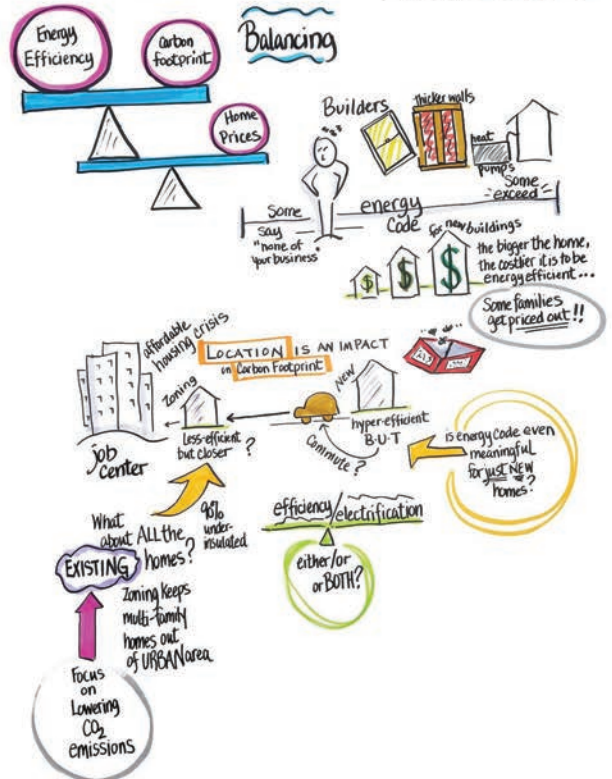 Energy
Efficiency
Carbon
footprint
Balancing
Home
Prices
Builders
thicker walls
heat
pumps
Some
exceed
Some
say
"none of
your business"
energy
Code
for new buildings
$
$
$
the bigger the home,
the costlier it is to be
energy efficient...
Some families
get priced out!!
affordable
housing crisis
LOCATION IS AN IMPACT
on Carbon Footprint
Zoning
NEW
job
center
less-efficient
but closer?
Commute?
hyper-efficient
B·U·T
is energy code even
meaningful
for just NEW
homes?
What
about ALL the
EXISTING homes?
90%
under-
insulated
efficiency/electrification
either/or
or BOTH?
Zoning keeps
multi-family
homes out
of URBAN area
Focus
on
Lowering
CO2
emissions